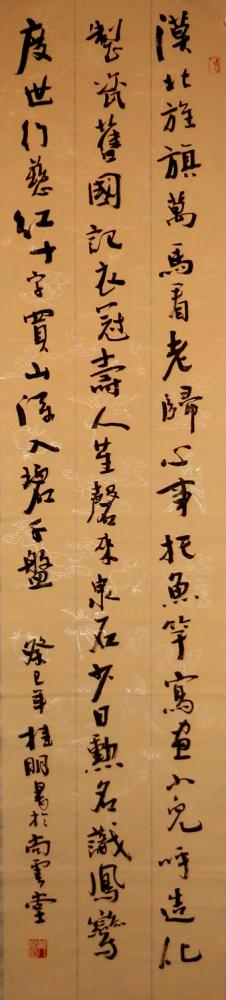 漠北旌旗萬馬看老歸心事把魚竿寫畫小兒呼造化
製瓷舊國記衣冠壽人笙磬來泉石少日勳名識鳳鸞
度世行慈紅十字買山深入碧千盤
癸巳年桂明書於尚雲堂